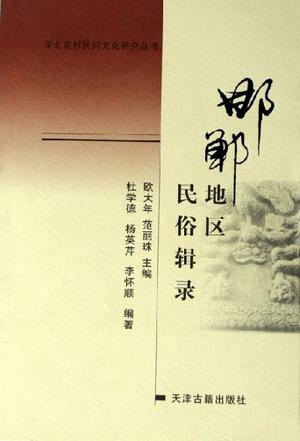 华北农村民间文化研究丛书
邯郸
地区
民俗辑录
欧大年 范丽珠 主编
杜学德 杨英芹 李怀顺 编著
天津古籍出版社